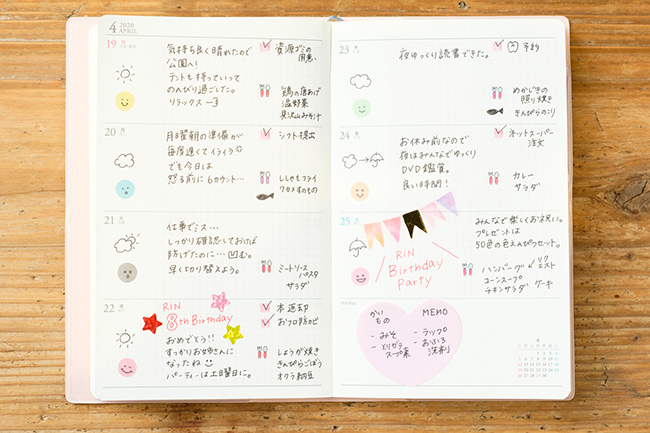 4 2020
APRIL
19
気持ち良く晴れたので
公園へ!
テントも持っていって
のんびり過ごした。
リラックス
資源ゴミの
用意
鶏の唐あげ
温野菜
具沢山みそ汁
20
月曜朝の準備が
毎度遅くてイライラ
でも今日は
怒る前に6カウント…
シフト提出
ししゃもフライ
ワカメすのもの
21
仕事でミス…
しっかり確認しておけば
防げたのに…凹む。
早く切り替えよう。
ミートソース
パスタ
サラダ
22
RIN
8th Birthday
おめでとう!!
すっかりお姉さんに
なったね
パーティーは土曜日に。
本返却
お風呂防カビ
しょうが焼き
きんぴらごぼう
オクラ納豆
23
夜ゆっくり読書できた。
予約
めかじきの
照り焼き
きんぴらのこり
24
お休み前なので
夜はみんなでゆっくり
DVD鑑賞。
良い時間!
ネットスーパー
注文
カレー
サラダ
25
RIN
Birthday
Party
みんなで楽しくお祝い。
プレゼントは
50色の色えんぴつセット。
ハンバーグ
リク
エスト
コーンスープ
チキンサラダ ケーキ
かい
もの
- みそ
- とりガラ
スープ素
MEMO
- ラップ
- おふろ
洗剤
4